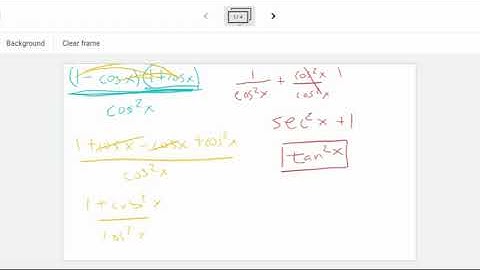 1/4
Background Clear frame
(1 - cosx)(1 + cosx)
cos²x
1 + cosx - cosx + cos²x
cos²x
1 + cos²x
cos²x
1/cos²x + cos²x/cos²x 1
sec²x + 1
tan²x